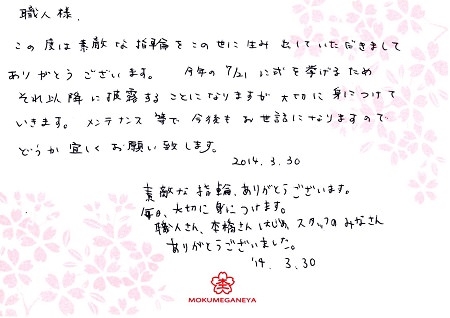 職人様、
この度は素敵な指輪をこの世に生み出していただきまして
ありがとうございます。 今年の7/21に式を挙げるため
それ以降に披露することになりますが大切に身につけて
いきます。 メンテナンス等で今後もお世話になりますので
どうか宜しくお願い致します。
2014.3.30
素敵な指輪、ありがとうございます。
毎日、大切に身につけます。
職人さん、本橋さんはじめ、スタッフのみなさん
ありがとうございました。
'14. 3.30
MOKUMEGANEYA